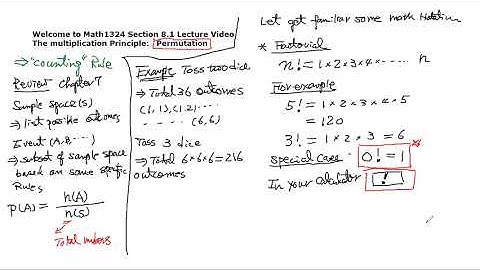 Welcome to Math1324 Section 8.1 Lecture Video
The multiplication Principle: Permutation
⇒ "counting" Rule
Review Chapter 7
Sample space (S)
⇒ list possible outcomes
Event (A, B, ....)
⇒ subset of sample space
based on some specific
Rules
P(A) = n(A) / n(S)
Total numbers
Example Toss two dice
⇒ Total 36 outcomes
(1,1), (1,2) ....
.... (6,6)
Toss 3 dice
⇒ Total 6×6×6 = 216
outcomes
Let get familiar some math Notation
* Factorial
n! = 1×2×3×4×.... n
For example
5! = 1×2×3×4×5
= 120
3! = 1×2×3 = 6
special case: 0! = 1 *
In your calculator !